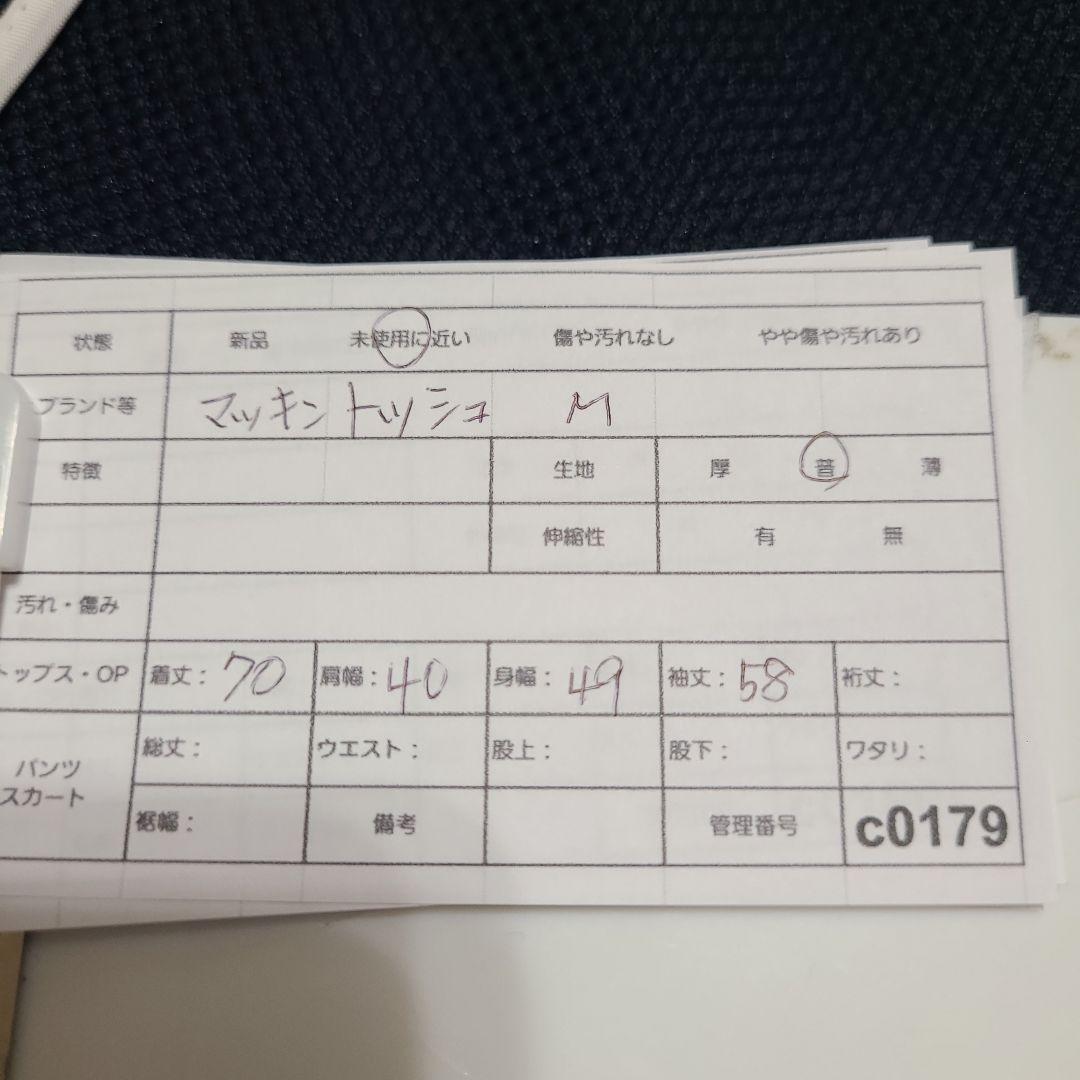 状態 新品 未使用に近い 傷や汚れなし やや傷や汚れあり
ブランド等 マッキントッシュ M
特徴 生地 厚 普 薄
伸縮性 有 無
汚れ・傷み
トップス・OP 着丈：70 肩幅：40 身幅：49 袖丈：58 裄丈：
パンツ
スカート
総丈： ウエスト： 股上： 股下： ワタリ：
裾幅： 備考 管理番号 c0179